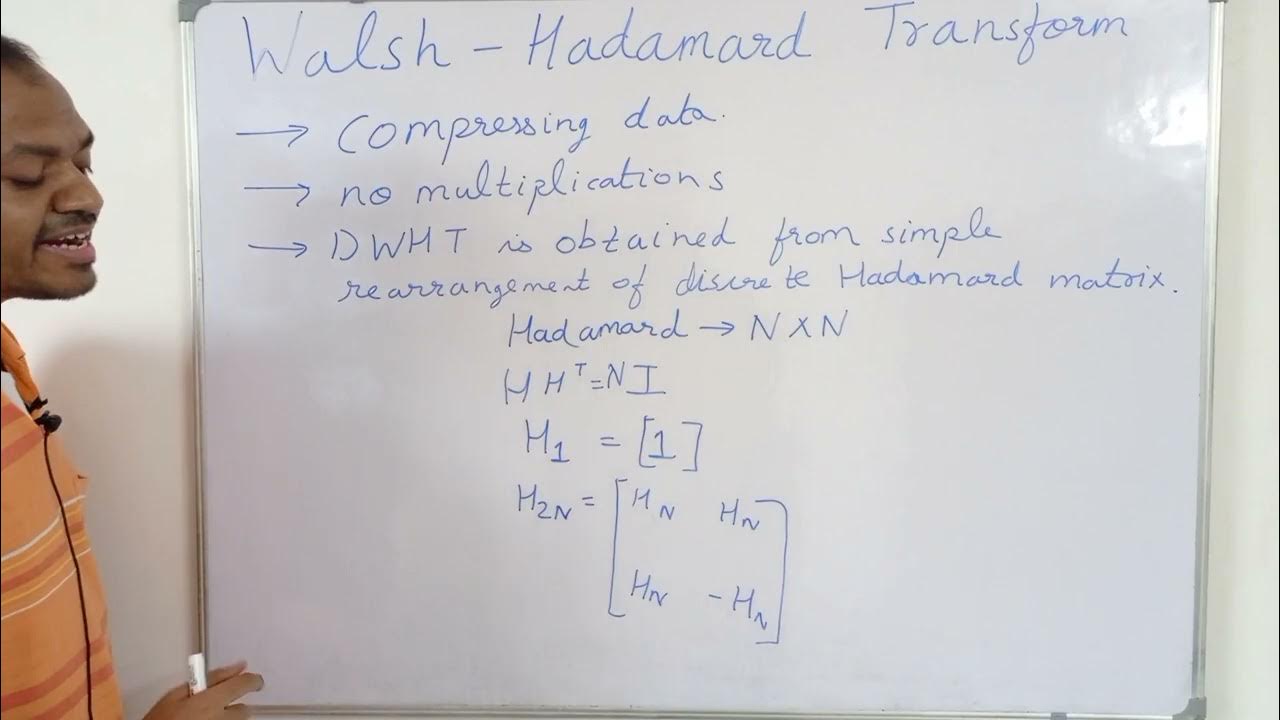 Walsh - Hadamard Transform
→ Compressing data.
→ no multiplications
→ DWHT is obtained from simple
rearrangement of discrete Hadamard matrix.
Hadamard → N X N
H H^T = N I
H₁ = [1]
H₂N = [ H_N H_N
H_N - H_N ]